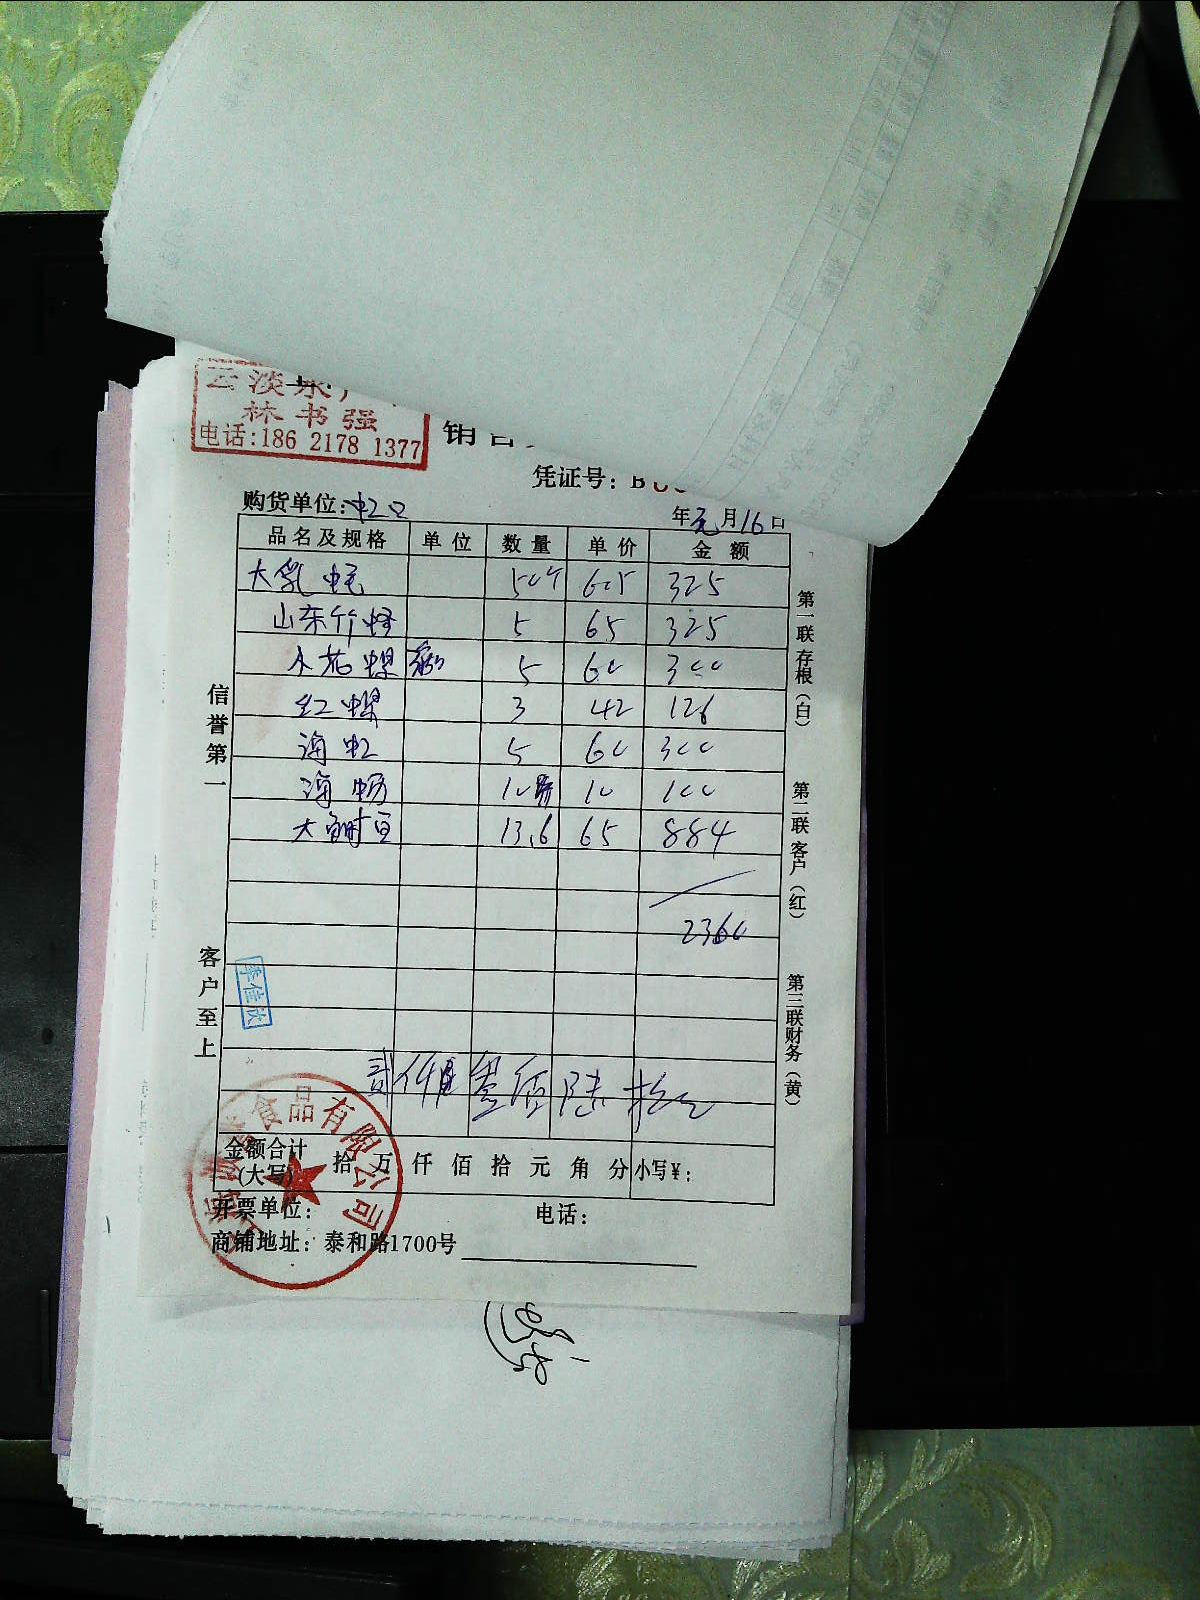 云淡水
林书强
电话:186 2178 1377
销售
凭证号: B
购货单位:虹口
年元月16日
品名及规格 单位 数量 单价 金额
大乳蚝 50个 6.5 325
山东竹蛏 5 65 325
5 60 300
红螺 3 42 126
海虹 5 60 300
海肠 10 10 100
13.6 65 884
2360
贰仟 叁佰陆拾元
金额合计
(大写) 拾万仟佰拾元角分 小写¥:
开票单位: 电话:
商铺地址: 泰和路1700号
信誉第一
客户至上
第一联存根(白)
第二联客户(红)
第三联财务(黄)
李佳欣
食品有限公司